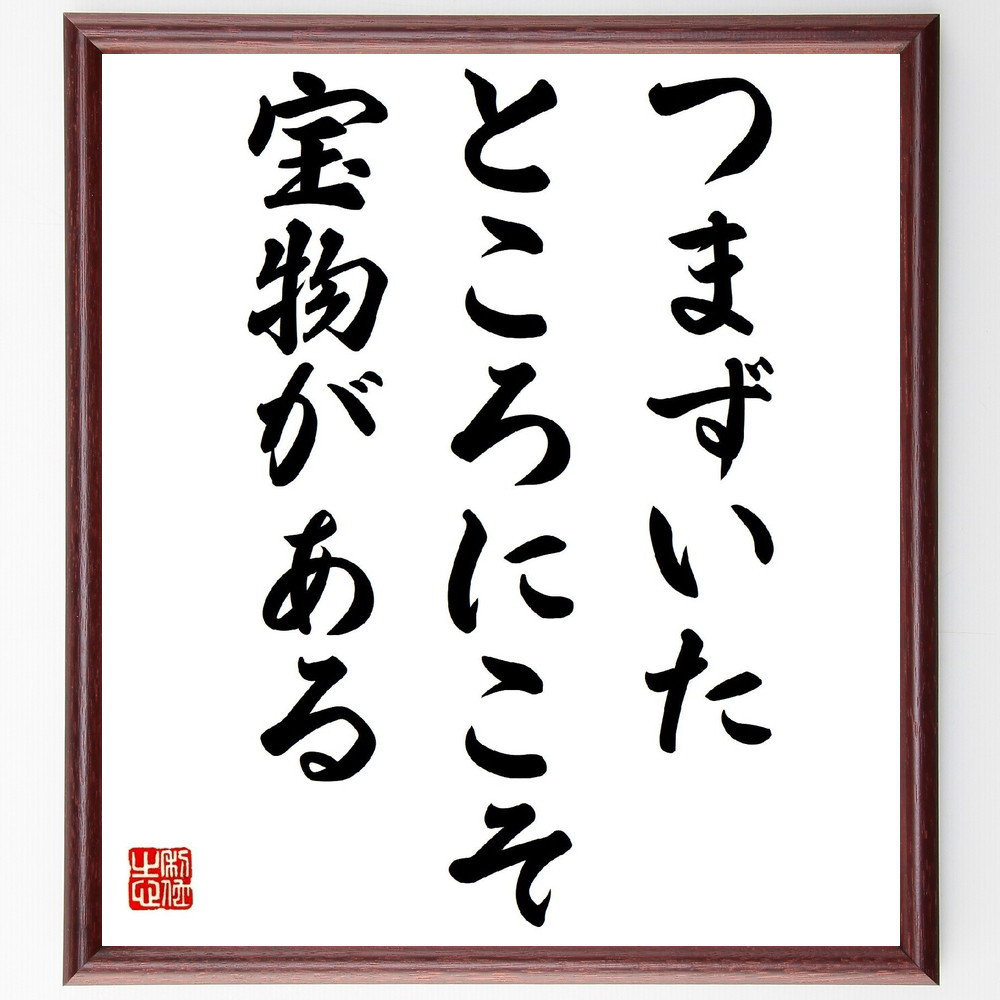 つまずいた
ところにこそ
宝物がある